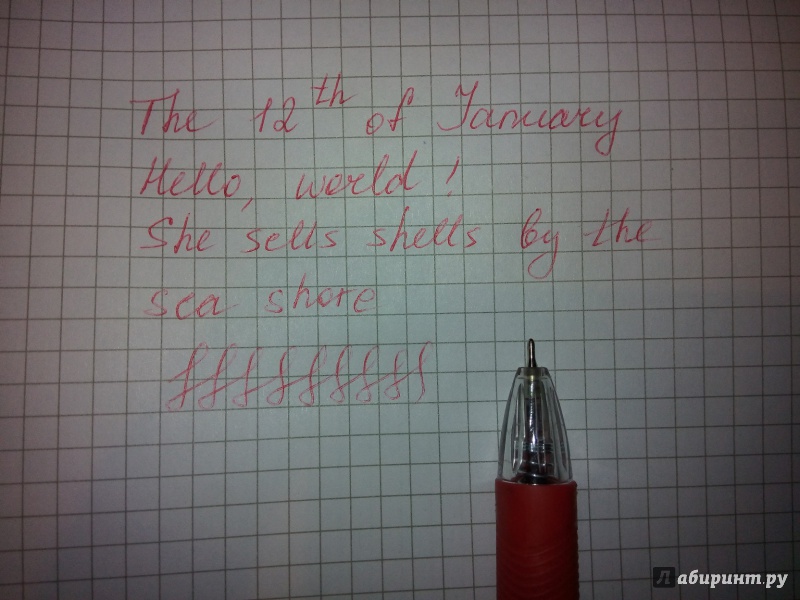 The 12th of January
Hello, world!
She sells shells by the
sea shore
fffffffff
Лабиринт.ру